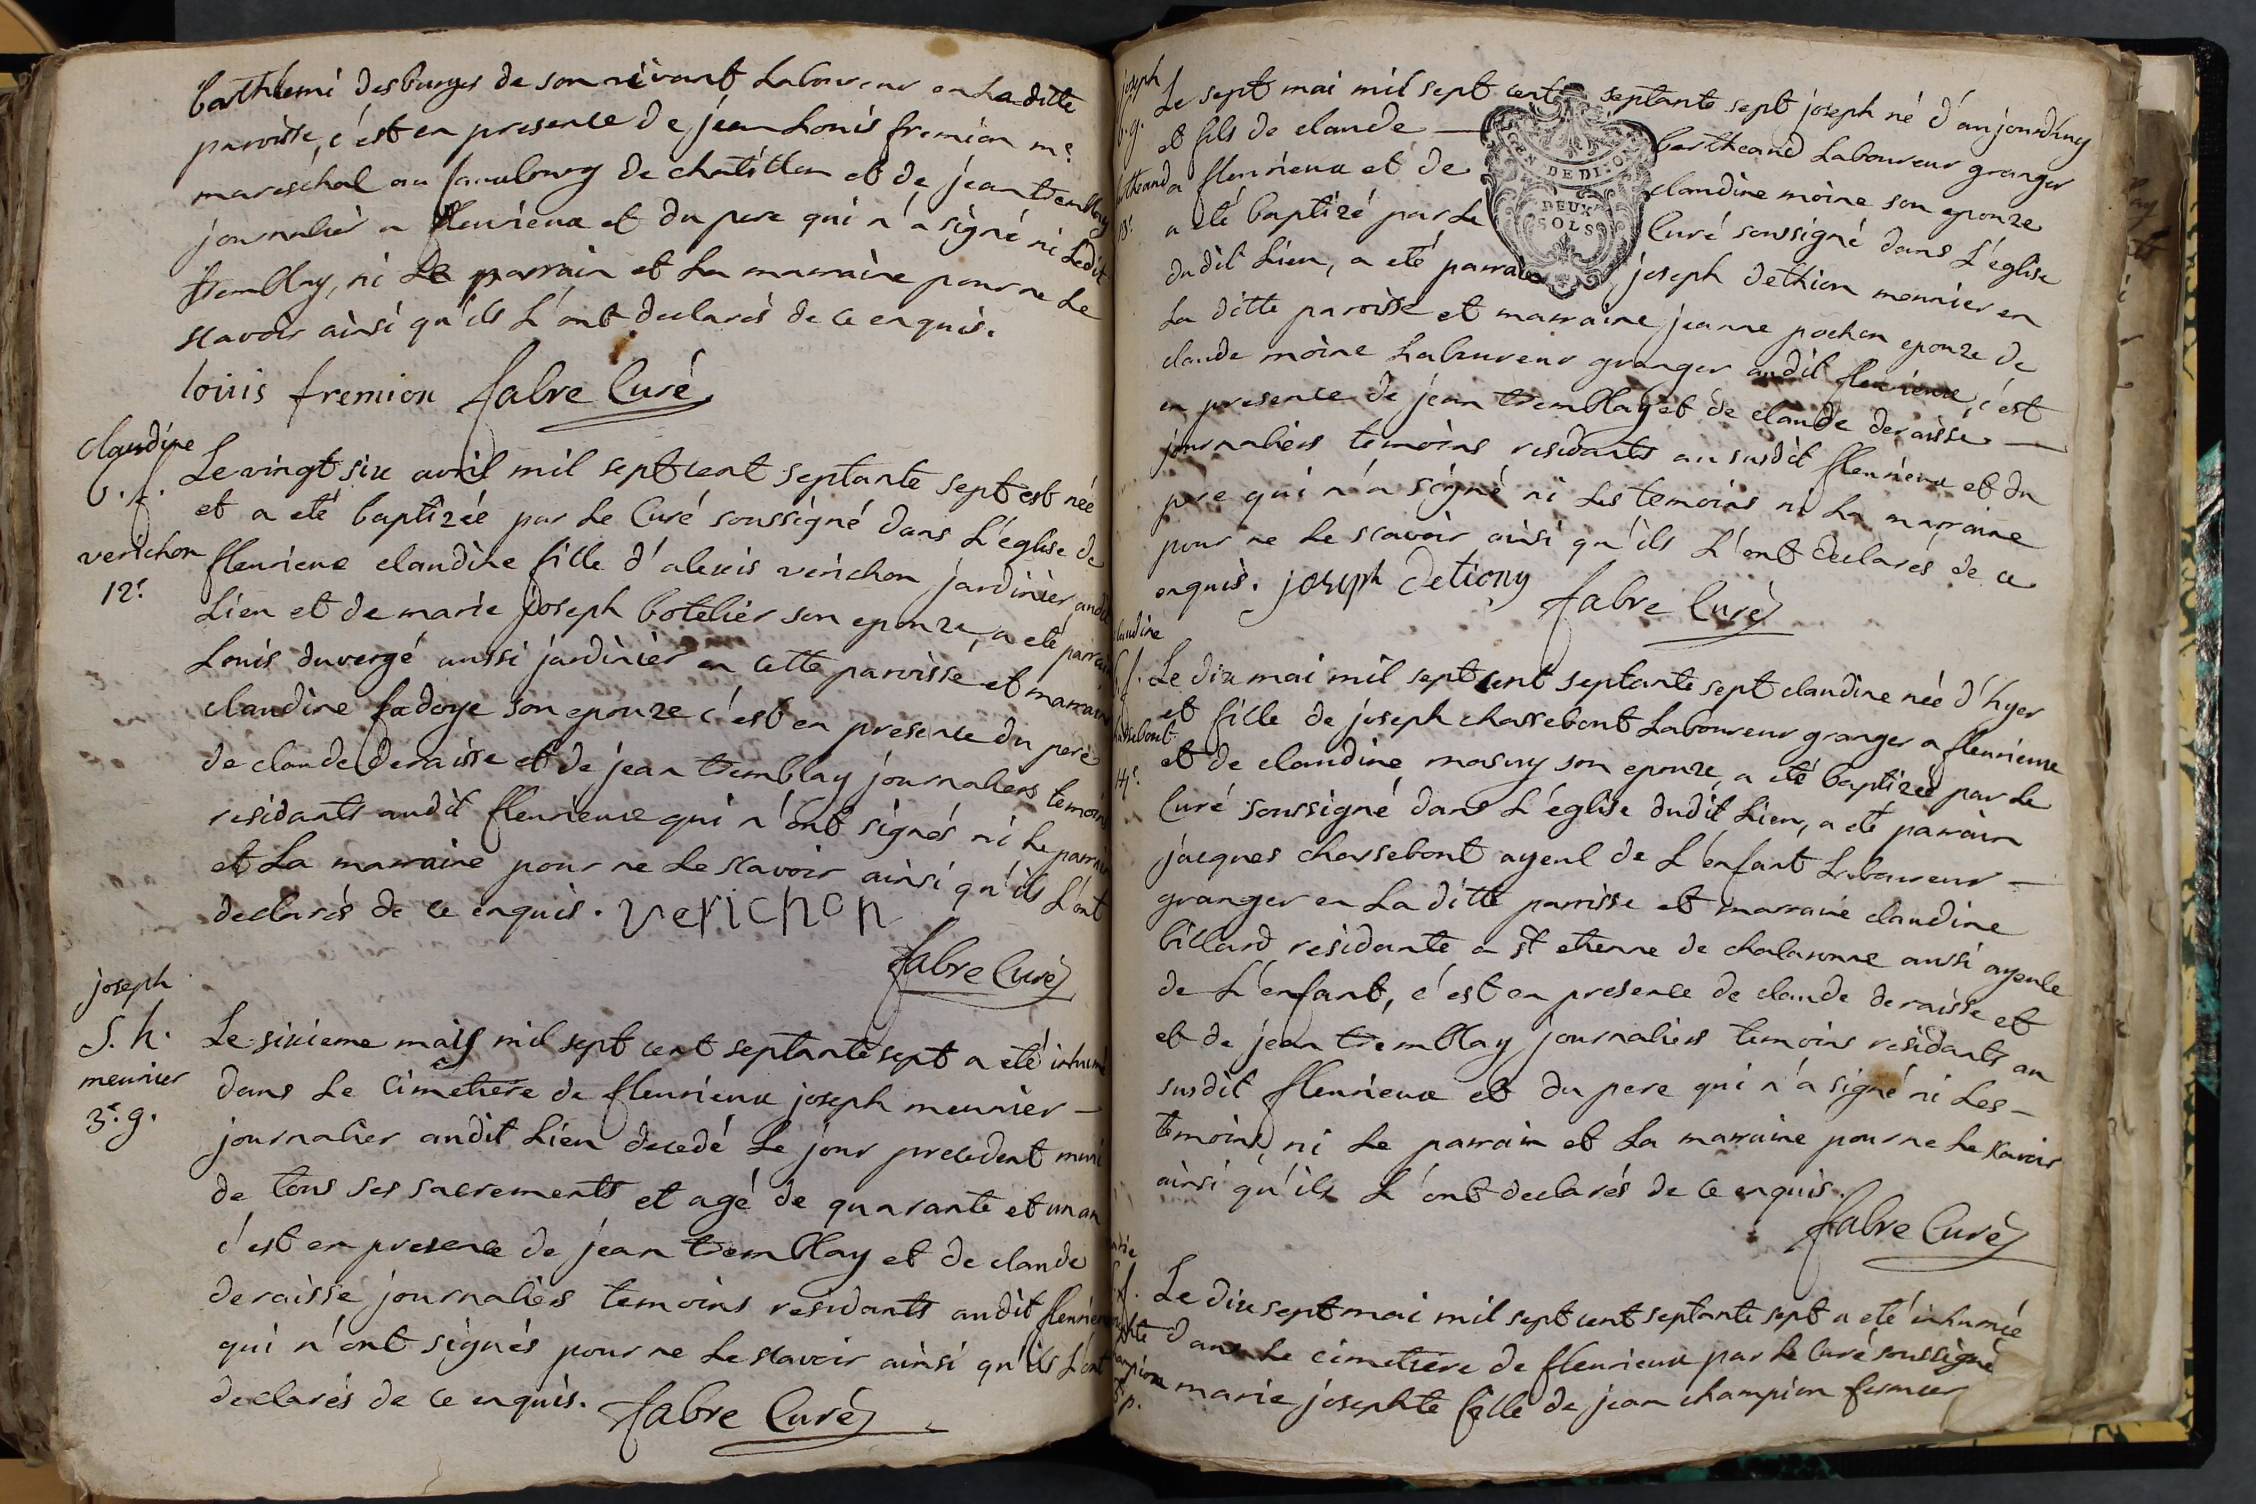 barthlemi desburges de son vivant Laboureur en La ditte
paroisse, c'est en presence de jean Louis fremion me.
mareschal au fauxbourg de chatillon et de jean tremblay
journalier a fleurieux et du pere qui n'a signé ni Ledit
tremblay, ni Le parrain et La marraine pour ne Le
scavoir ainsi qu'ils L'ont declarés de ce enquis.
louis fremion fabre Curé
claudine
b. f.
verichon
12e.
Le vingt six avril mil sept cent septante sept est née
et a eté baptizée par Le Curé soussigné dans L'église de
fleurieux claudine fille d'alexis verichon jardinier audit
Lieu et de marie joseph botelier son epouze, a eté parrain
Louis duvergé aussi jardinier en cette paroisse et marraine
claudine fadoye son epouze c'est en presence du pere
de claude deraisse et de jean tremblay journaliers temoins
residants audit fleurieux qui n'ont signés ni Le parrain
et La marraine pour ne Le scavoir ainsi qu'ils L'ont
declarés de ce enquis. verichon
fabre Curé
joseph
S. h.
meunier
3e. g.
Le sixieme mais mil sept cent septante sept a eté inhumé
dans Le Cimetiere de fleurieux joseph meunier
journalier audit Lieu decedé Le jour precedent muni
de tous ses sacrements et agé de quarante et un an
c'est en presence de jean tremblay et de claude
deraisse journaliers temoins residants audit fleurieux
qui n'ont signés pour ne Le scavoir ainsi qu'ils L'ont
declarés de ce enquis. fabre Curé
joseph
b. g.
bertheand
13e.
Le sept mai mil sept cent septante sept joseph né d'aujourdhuy
et fils de claude bertheand Laboureur granger
a fleurieux et de claudine moine son epouze
a eté baptizé par Le Curé soussigné dans L'église
du dit Lieu, a eté parrain joseph dethion meunier en
La ditte paroisse et marraine jeanne pochon epouze de
claude moine Laboureur granger audit fleurieux, c'est
en presence de jean tremblay et de claude deraisse
journaliers temoins residants au susdit fleurieux et du
pere qui n'a signé ni Les temoins ni La marraine
pour ne Le scavoir ainsi qu'ils L'ont declarés de ce
enquis. joseph detiony fabre Curé
GEN DE DIJON
DEUX
SOLS
claudine
b. f.
chassebout
14e.
Le dix mai mil sept cent septante sept claudine née d'hyer
et fille de joseph chassebout Laboureur granger a fleurieux
et de claudine masuy son epouze, a eté baptizée par Le
Curé soussigné dans L'église dudit Lieu, a eté parrain
jacques chassebout ayeul de L'enfant Laboureur
granger en La ditte parrisse et marraine claudine
billard residante a st etienne de chalaronne aussi ayeule
de L'enfant, c'est en presence de claude deraisse et
et de jean tremblay journaliers temoins residants au
susdit fleurieux et du pere qui n'a signé ni Les
temoins, ni Le parrain et La marraine pour ne Le scavoir
ainsi qu'ils L'ont declarés de ce enquis.
fabre Curé
Le dix sept mai mil sept cent septante sept a eté inhumée
dans Le cimetiere de fleurieux par Le Curé soussigné
marie josephte fille de jean champion fermier